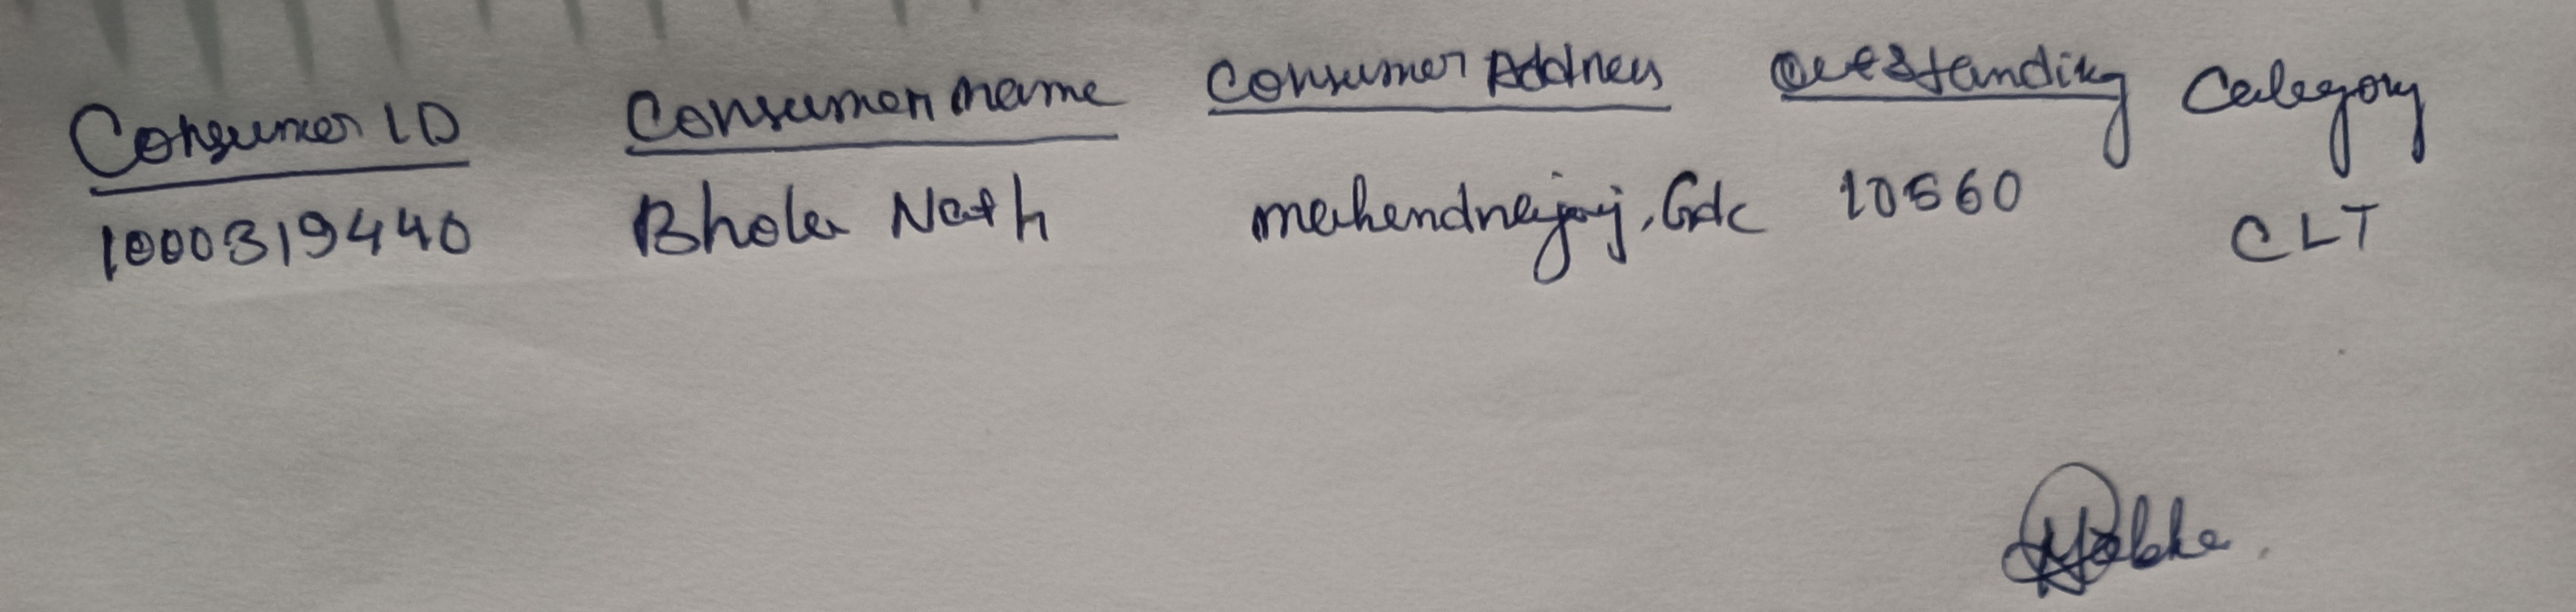 Consumer ID Consumer name Consumer Address Outstanding Category
1000319440 Bhola Nath mahendraganj, Gdk 10560 CLT